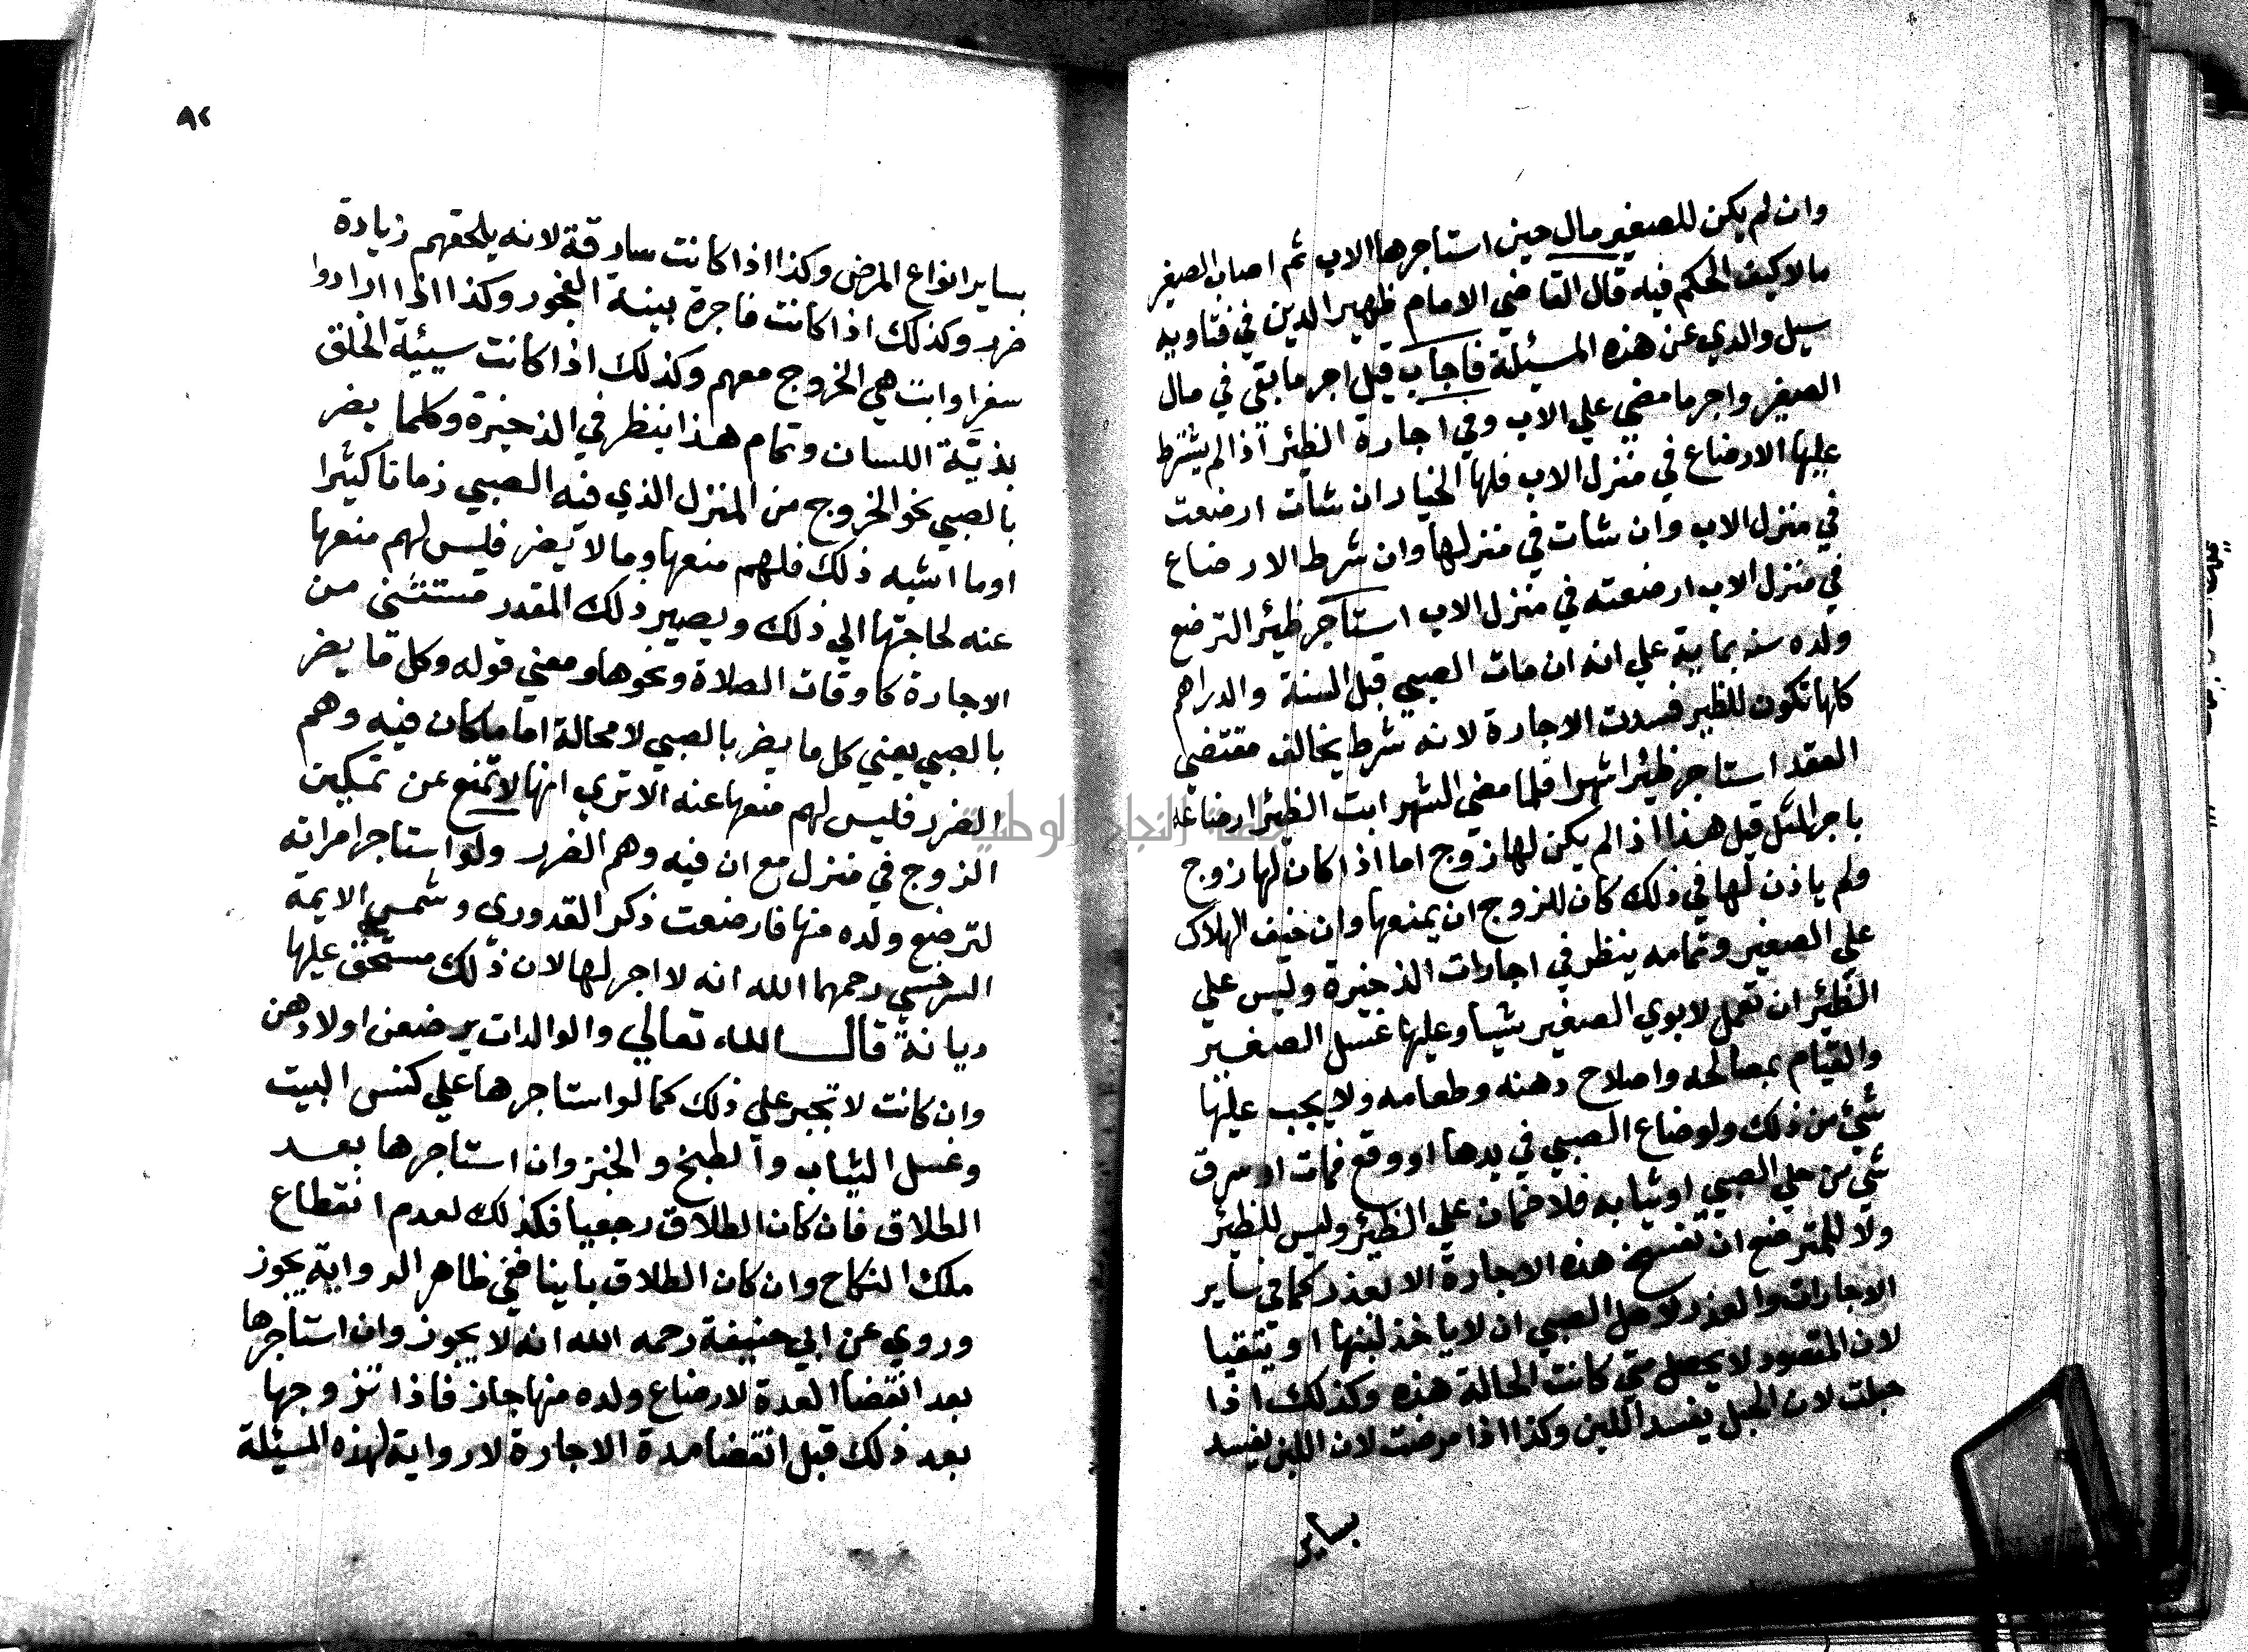 وان لم يكن للصغير مال حين استاجرها الاب ثم اصاب الصغير
مالا كيف الحكم فيه قال القاضي الامام ظهير الدين في فتاويه
سيل والدي عن هذه المسيلة فاجاب قيل اجر ما بقي في مال
الصغير واجر ما مضي علي الاب وفي اجارة الظئر اذا لم يشترط
عليها الارضاع في منزل الاب فلها الخيار ان شات ارضعت
في منزل الاب وان شات في منزلها وان شرط الارضاع
في منزل الاب ارضعته في منزل الاب استاجر ظئرا لترضع
ولده سنه بماية علي انه ان مات الصبي قبل السنة والدراهم
كلها تكون للظير فسدت الاجارة لانه شرط يخالف مقتضي
العقد استاجر ظئرا شهرا فلما مضي الشهر ابت الظئر ارضاعه
باجر المثل قيل هذا اذا لم يكن لها زوج اما اذا كان لها زوج
ولم ياذن لها في ذلك كان للزوج ان يمنعها وان خيف الهلاك
علي الصغير وتمامه ينظر في اجارات الذخيرة وليس علي
الظئر ان تعمل لابوي الصغير شيا وعليها غسل الصغير
والقيام بمصالحه واصلاح دهنه وطعامه ولا يجب عليها
شيء من ذلك ولو ضاع الصبي في يدها او وقع فمات او سرق
شي من حلي الصبي او ثيابه فلا ضمان علي الظئر وليس للظئر
ولا للمسترضع ان تفسخ هذه الاجارة الا لعذر كما في ساير
الاجارات والعذر لاهل الصبي ان لا ياخذ لبنها او يتقيا
لان المقصود لا يحصل متي كانت الحالة هذه وكذلك اذا
حبلت لان الحبل يفسد اللبن وكذا اذا مرضت لان اللبن يفسد
بساير
٨٢
بساير انواع المرض وكذا اذا كانت سارقة لانه يلحقهم زيادة
ضرر وكذلك اذا كانت فاجرة بينة الفجور وكذا اذا ارادوا
سفرا وابت هي الخروج معهم وكذلك اذا كانت سيئية الخلق
بذيّة اللسان وتمام هذا ينظر في الذخيرة وكلما يضر
بالصبي نحو الخروج من المنزل الذي فيه الصبي زمانا كثيرا
او ما اشبه ذلك فلهم منعها وما لا يضر فليس لهم منعها
عنه لحاجتها الي ذلك ويصير ذلك المقدر مستثني من
الاجارة كاوقات الصلاة ونحوها ومعني قوله وكل ما يضر
بالصبي يعني كل ما يضر بالصبي لا محالة اما ما كان فيه وهم
الضرر فليس لهم منعها عنه الا تري انها لا تمنع عن تمكين
الزوج في منزل مع ان فيه وهم الضرر ولو استاجر امراته
لترضع ولده منها فارضعت ذكر القدوري وشمس الايمة
السرخسي رحمهما الله انه لا اجر لها لان ذلك مستحق عليها
ديانة قال الله تعالي والوالدات يرضعن اولادهن
وان كانت لا تجبر علي ذلك كما لو استاجرها علي كنس البيت
وغسل الثياب والطبخ والخبز وان استاجرها بعد
الطلاق فان كان الطلاق رجعيا فكذلك لعدم انقطاع
ملك النكاح وان كان الطلاق باينا ففي ظاهر الرواية يجوز
وروي عن ابي حنيفة رحمه الله انه لا يجوز وان استاجرها
بعد انقضا العدة لارضاع ولده منها جاز فاذا تزوجها
بعد ذلك قبل انقضا مدة الاجارة لا رواية لهذه المسيئلة